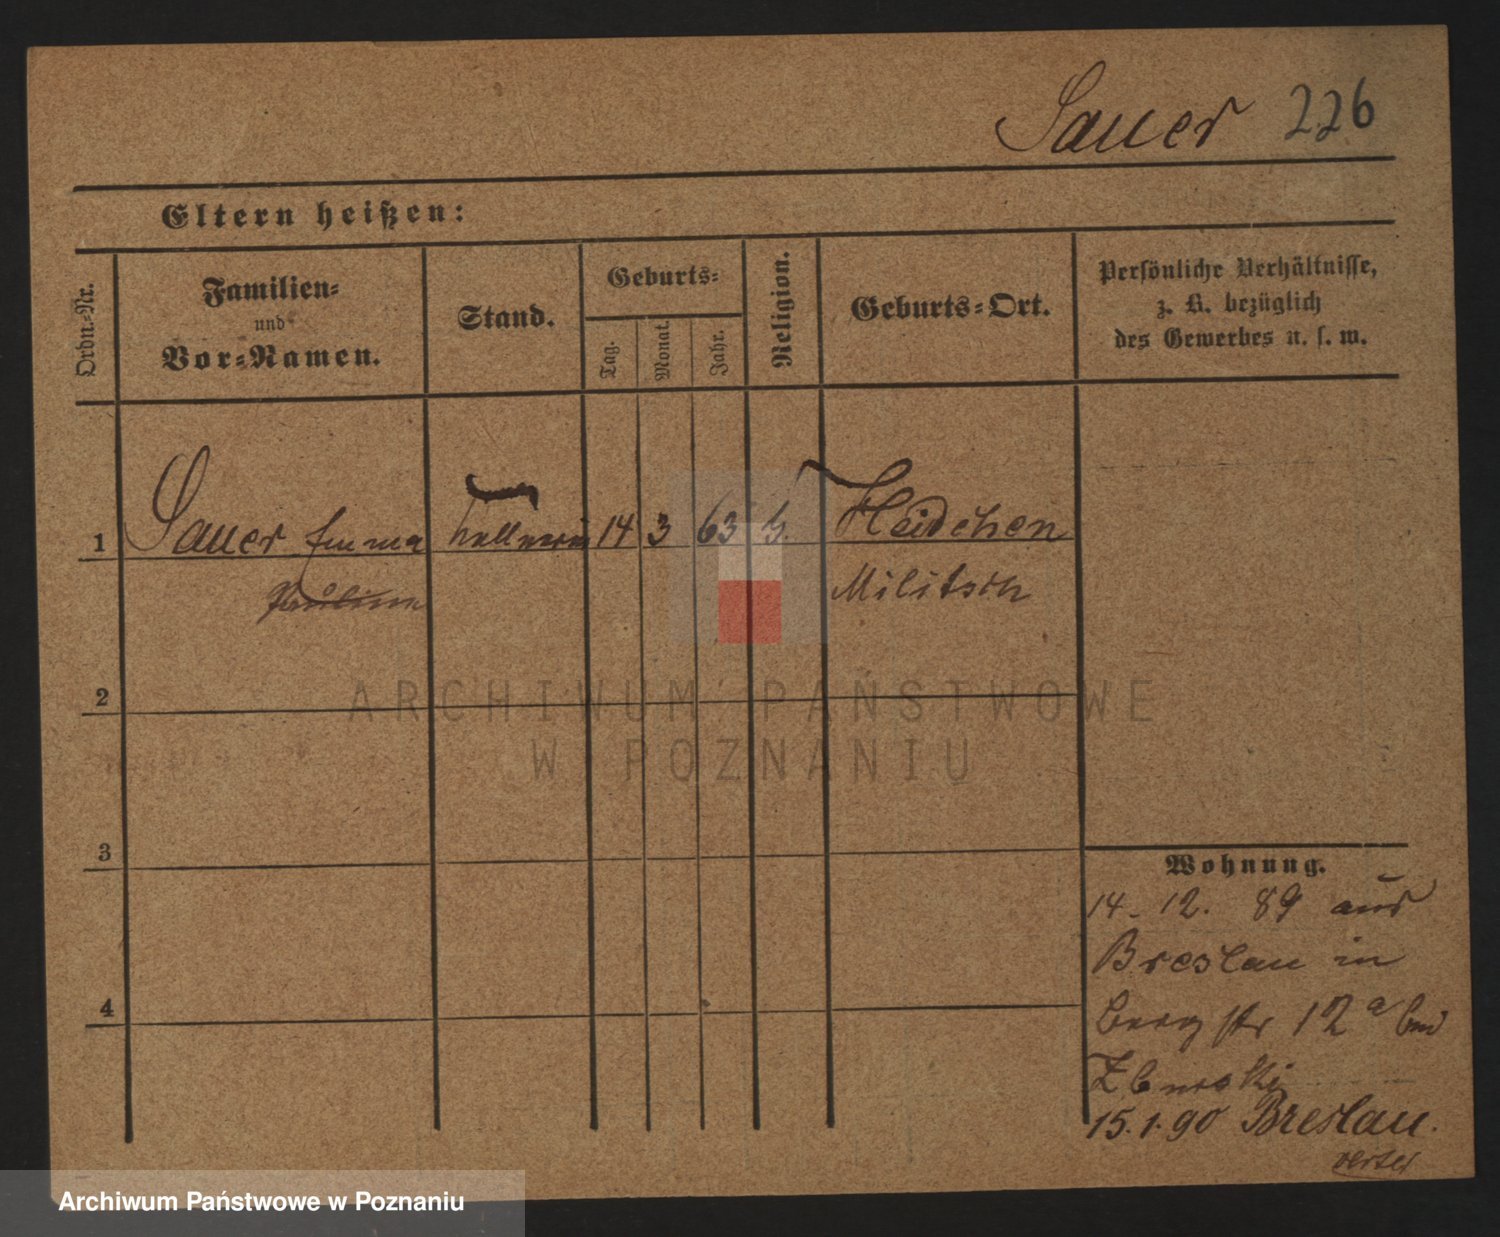 Sauer 226
Eltern heißen:
Ordn.-Nr.
Familien-
und
Vor-Namen.
Stand.
Geburts-
Tag.
Monat.
Jahr.
Religion.
Geburts-Ort.
Persönliche Verhältnisse,
z. B. bezüglich
des Gewerbes u. s. w.
1 Sauer Emma Kellnerin 14 3 63 Heidchen
Pauline Militsch
2
3
4
Wohnung.
14. 12. 89 aus
Breslau in
Berg str 12a bei
15. 1. 90 Breslau.
ARCHIWUM PAŃSTWOWE
W POZNANIU
Archiwum Państwowe w Poznaniu